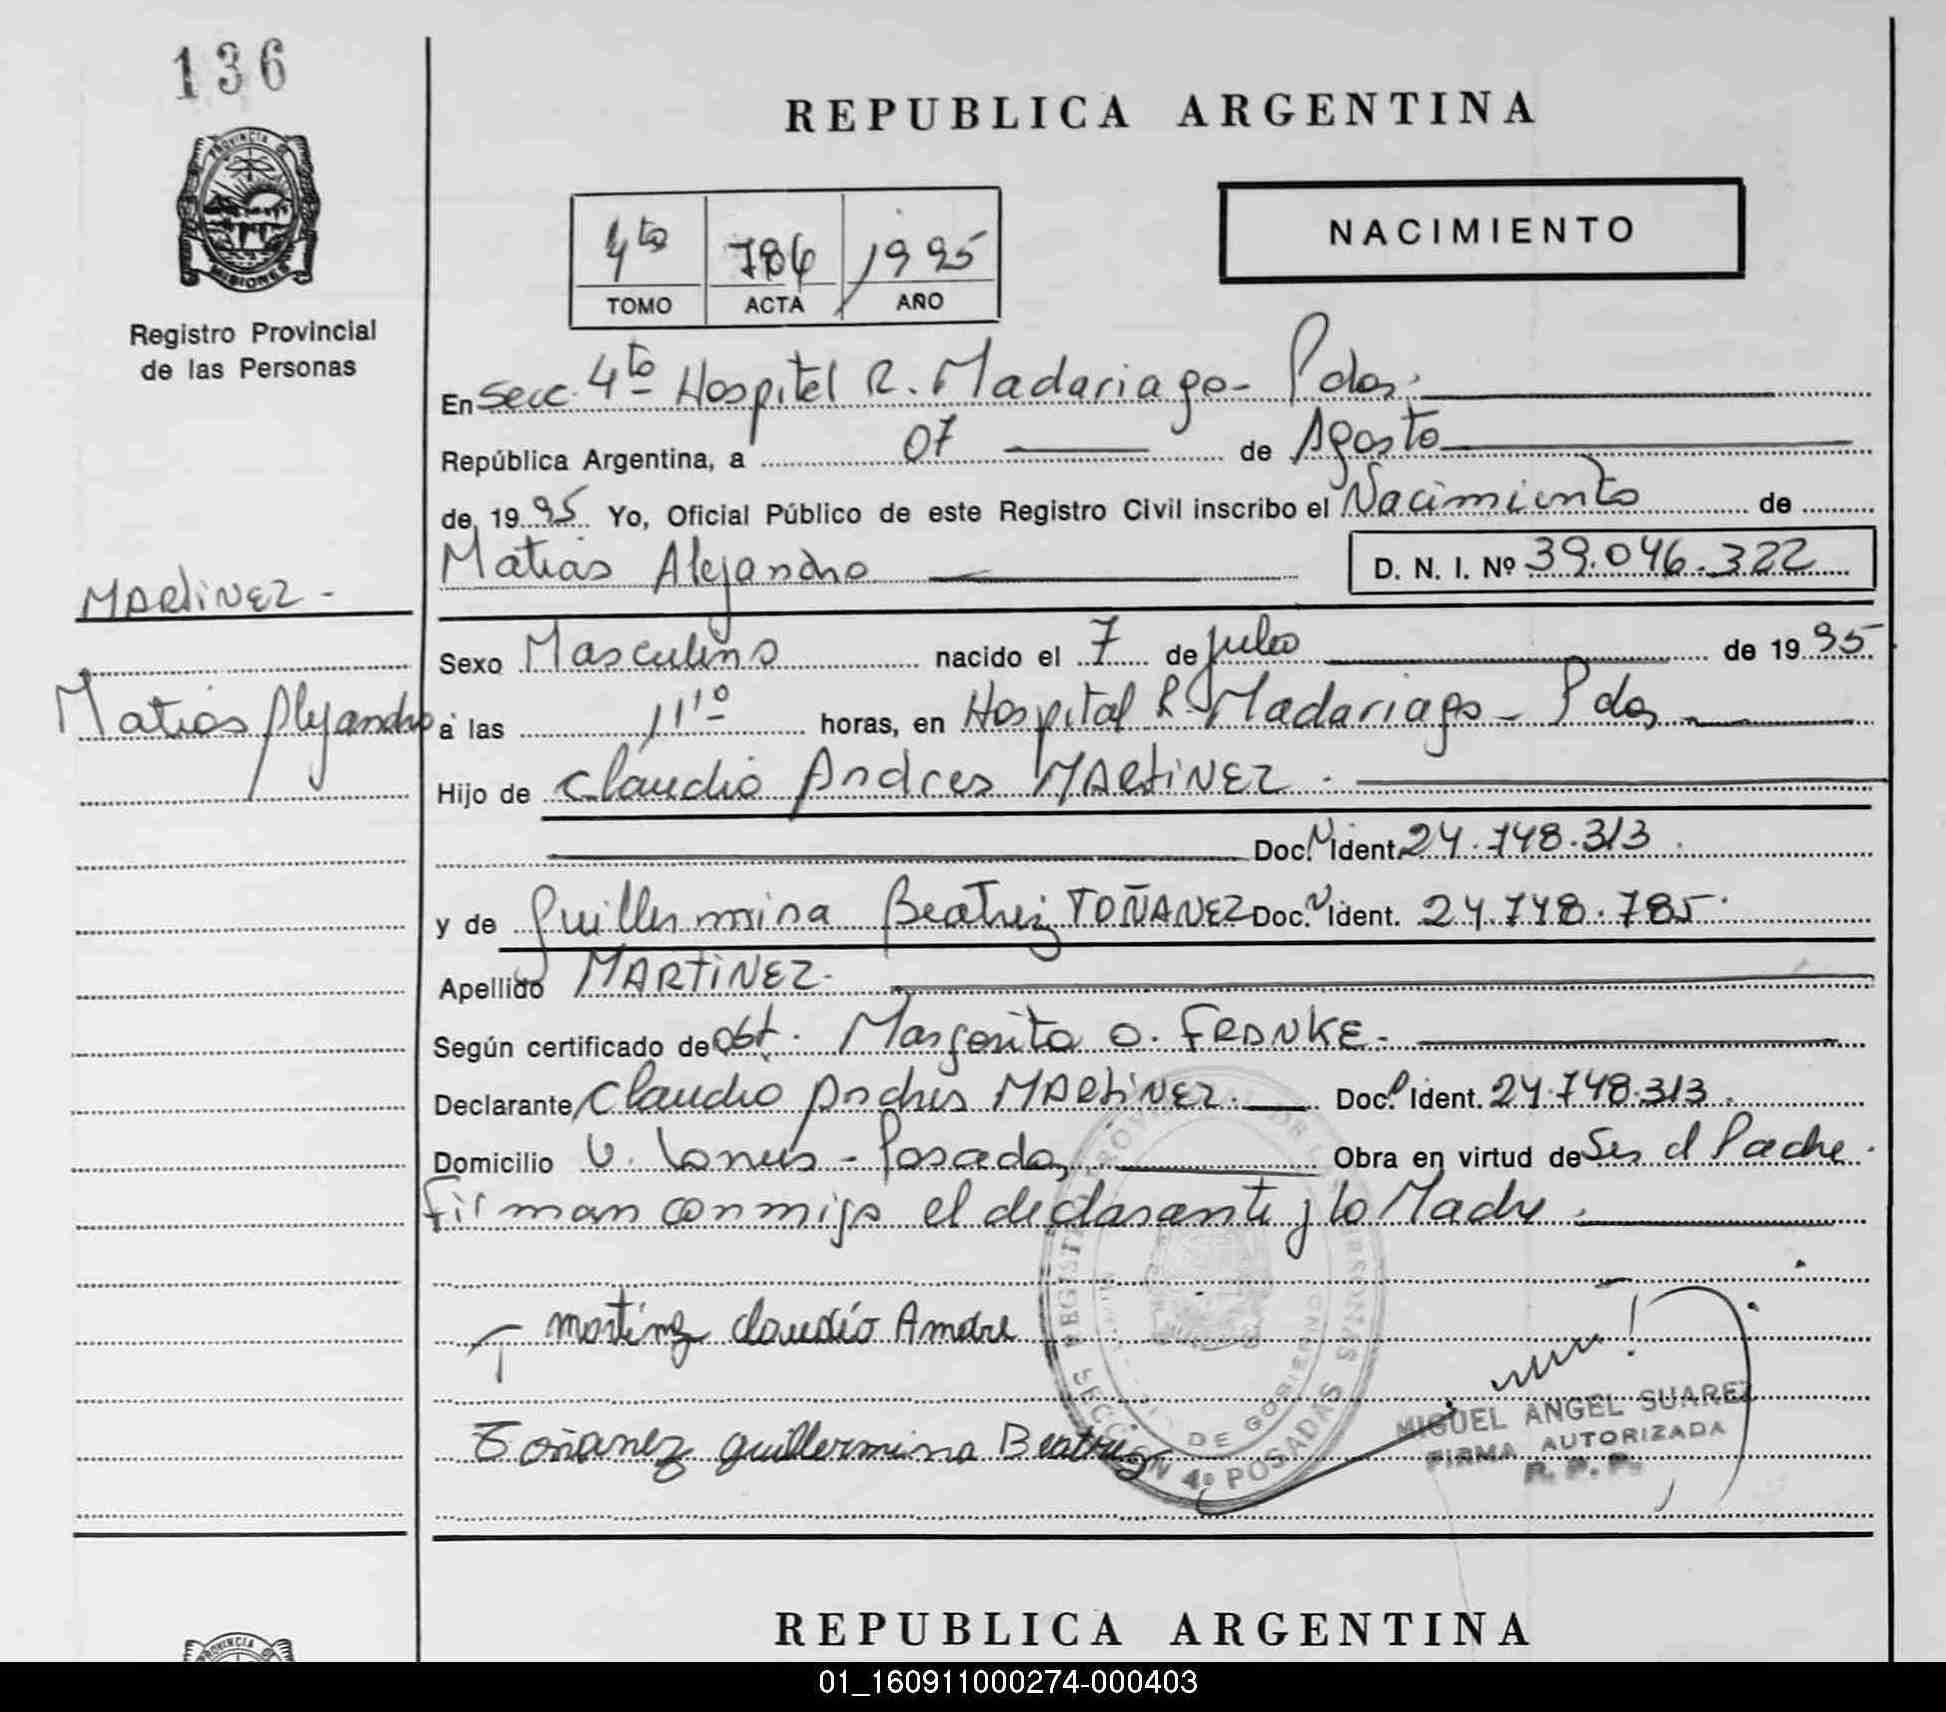 136
REPUBLICA ARGENTINA
PROVINCIA DE
MISIONES
Registro Provincial
de las Personas
4to 1995
TOMO ACTA AÑO
NACIMIENTO
En Secc. 4to Hospital R. Madariaga - Pdas.
República Argentina, a 07 de Agosto
de 1995 Yo, Oficial Público de este Registro Civil inscribo el Nacimiento de
Matias Alejandro D. N. I. Nº 39.046.322
MARTINEZ -
Sexo Masculino nacido el 7 de julio de 1995
Matias Alejandro
a las 11'º horas, en Hospital R. Madariaga - Pdas
Hijo de Claudio Andres MARTINEZ.
Doc. N Ident. 24.748.313.
y de Guillermina Beatriz TOÑANEZ Doc. N Ident. 24.748.785.
Apellido MARTINEZ.
Según certificado de Obt. Margarita O. FRANKE.
Declarante Claudio Andres MARTINEZ. Doc. Ident. 24.748.313.
Domicilio V. Lanus - Posadas, Obra en virtud de Ser el Padre.
Firman conmigo el declarante y la Madre.
Martinez Claudio Andre
Toñanez guillermina Beatriz
REGISTRO PROVINCIAL DE LAS PERSONAS
DE GOBIERNO
SECCION 4º POSADAS
MIGUEL ANGEL SUAREZ
FIRMA AUTORIZADA
R. P. P.
REPUBLICA ARGENTINA
PROVINCIA
01_160911000274-000403